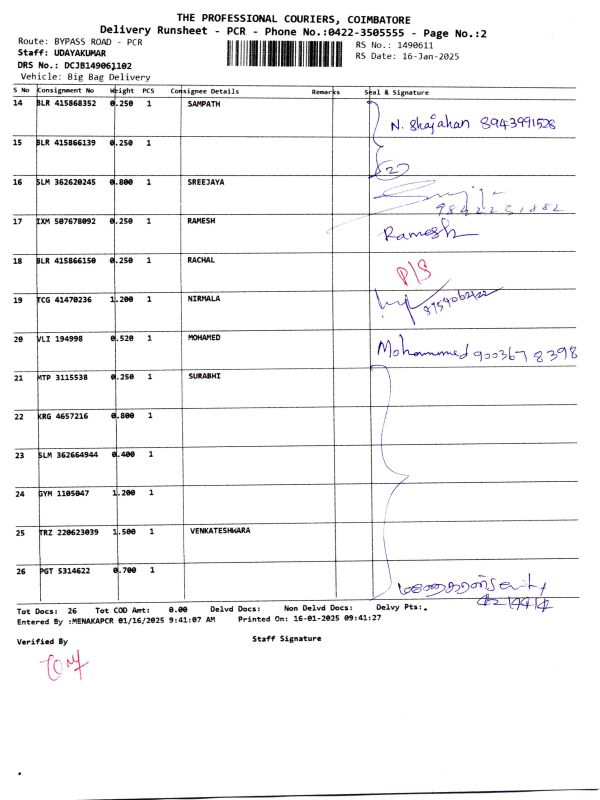 THE PROFESSIONAL COURIERS, COIMBATORE
Delivery Runsheet - PCR - Phone No.:0422-3505555 - Page No.:2
Route: BYPASS ROAD - PCR
RS No.: 1490611
Staff: UDAYAKUMAR
RS Date: 16-Jan-2025
DRS No.: DCJB149061102
Vehicle: Big Bag Delivery
S No Consignment No Weight PCS Consignee Details Remarks Seal & Signature
14 BLR 415868352 0.250 1 SAMPATH
N. Shajahan 8943991528
15 BLR 415866139 0.250 1
(2)
16 SLM 362620245 0.800 1 SREEJAYA
17 IXM 507678092 0.250 1 RAMESH Ramesh
18 BLR 415866150 0.250 1 RACHAL P/S
19 TCG 41470236 1.200 1 NIRMALA
20 VLI 194998 0.520 1 MOHAMED Mohammed 9003678398
21 MTP 3115538 0.250 1 SURABHI
22 KRG 4657216 0.800 1
23 SLM 362664944 0.400 1
24 GYM 1105047 1.200 1
25 TRZ 220623039 1.500 1 VENKATESHWARA
26 PGT 5314622 0.700 1
Tot Docs: 26 Tot COD Amt: 0.00 Delvd Docs: Non Delvd Docs: Delvy Pts:
Entered By :MENAKAPCR 01/16/2025 9:41:07 AM Printed On: 16-01-2025 09:41:27
Verified By Staff Signature